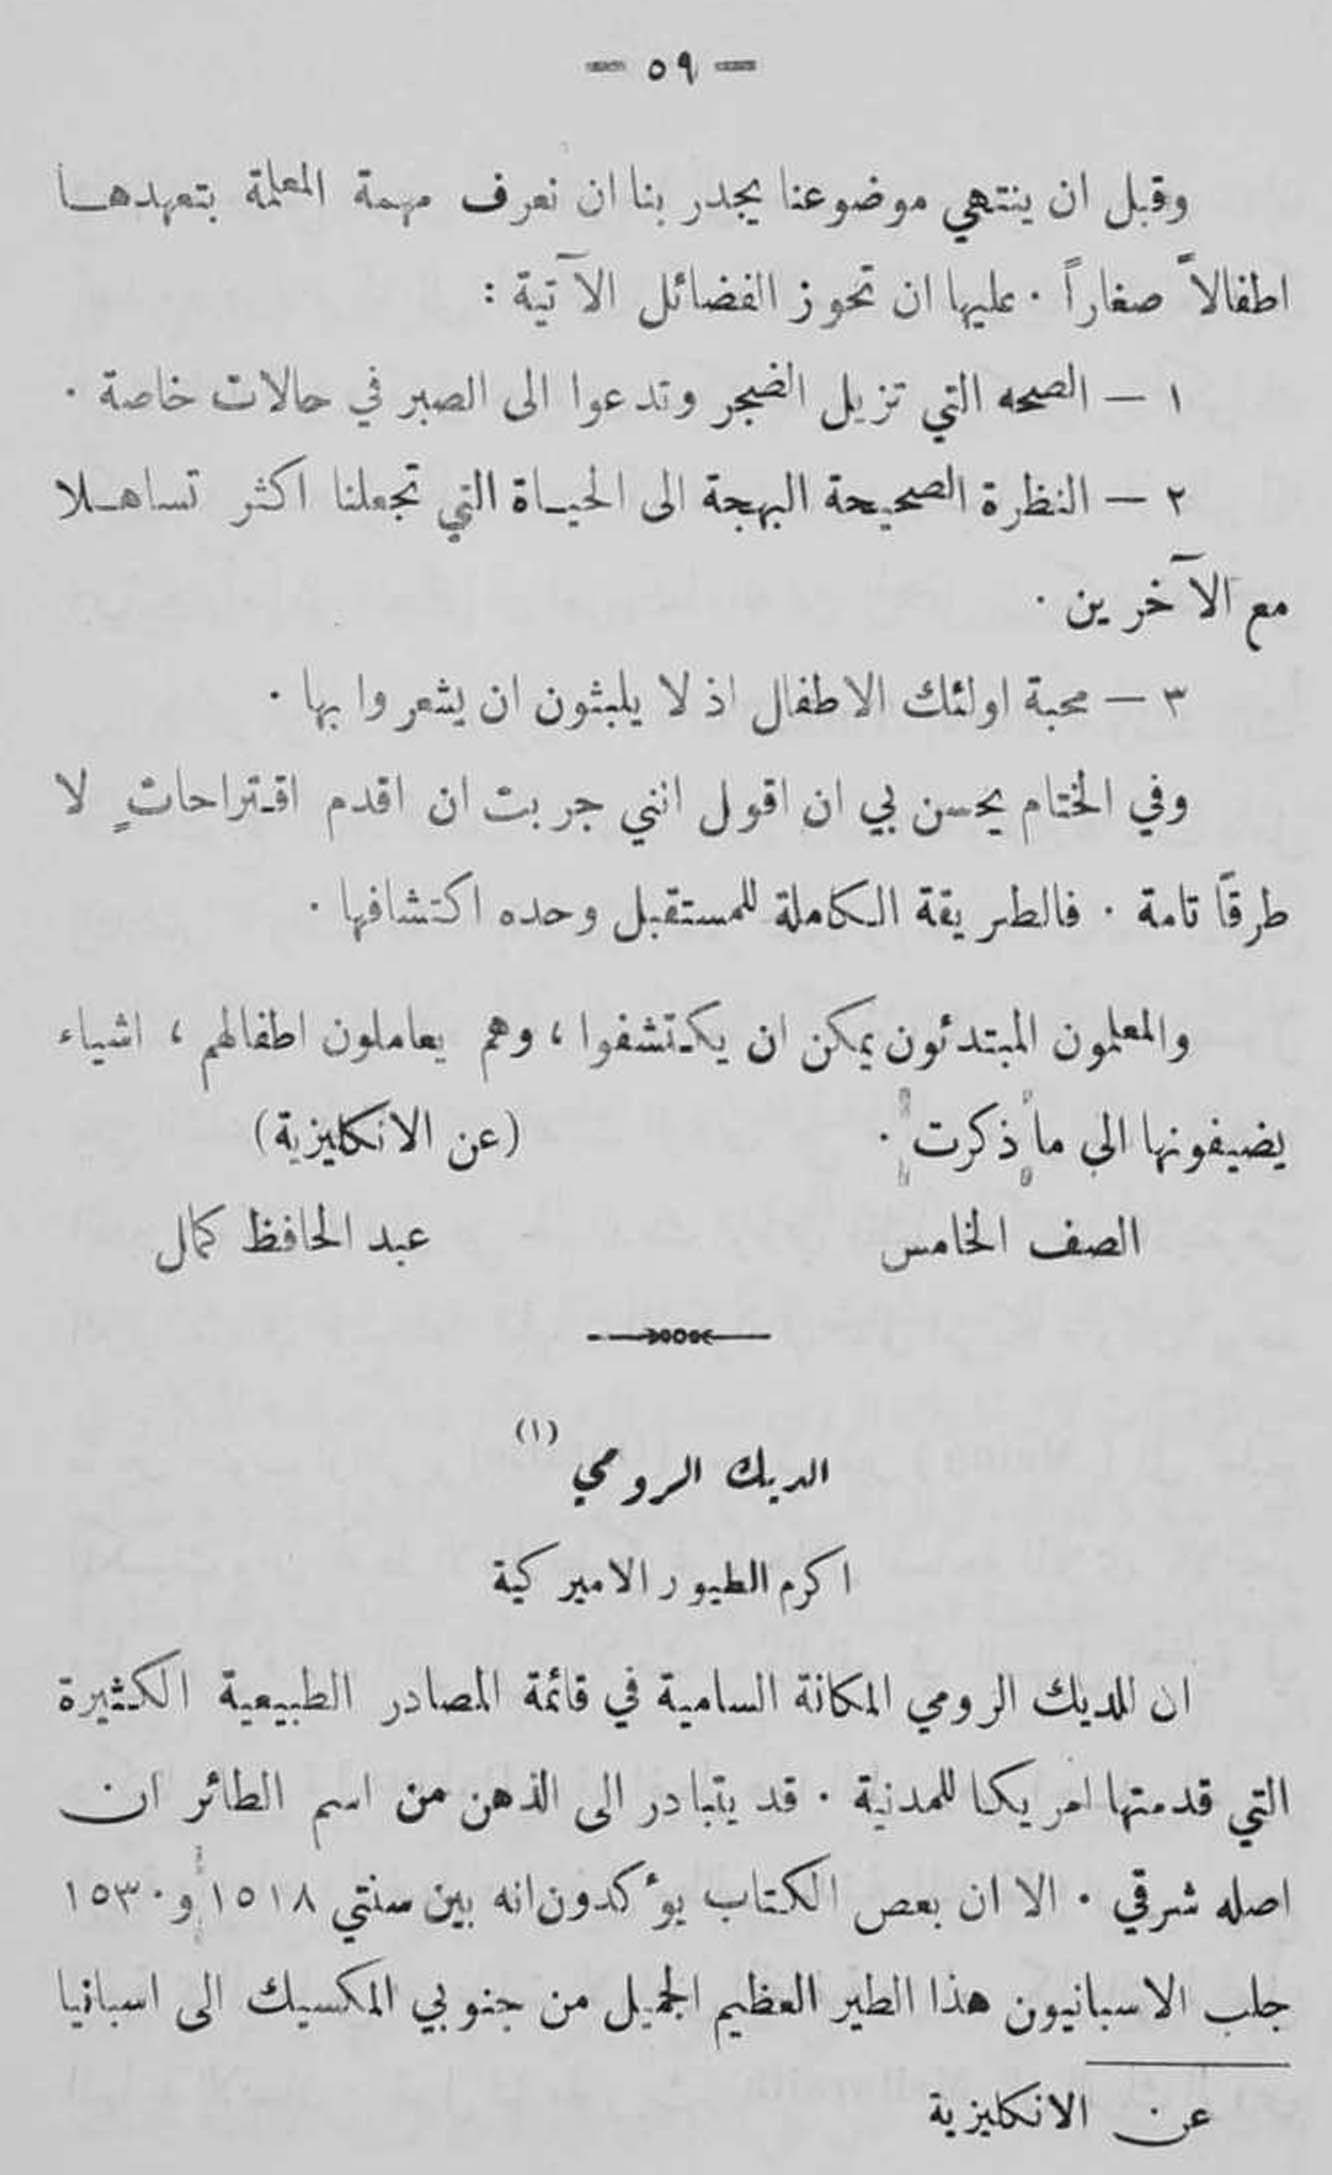 — ٥٩ —
وقبل ان ينتهي موضوعنا يجدر بنا ان نعرف مهمة المعلمة بتعهدها
اطفالاً صغاراً . عليها ان تحوز الفضائل الآتية :
١ — الصحه التي تزيل الضجر وتدعوا الى الصبر في حالات خاصة .
٢ — النظرة الصحيحة البهجة الى الحياة التي تجعلنا اكثر تساهلا
مع الآخرين .
٣ — محبة اولئك الاطفال اذ لا يلبثون ان يشعروا بها .
وفي الختام يحسن بي ان اقول انني جربت ان اقدم اقتراحاتٍ لا
طرقاً تامة . فالطريقة الكاملة للمستقبل وحده اكتشافها .
والمعلمون المبتدئون يمكن ان يكتشفوا ، وهم يعاملون اطفالهم ، اشياء
يضيفونها الى ما ذكرت . (عن الانكليزية)
الصف الخامس عبد الحافظ كمال
الديك الرومي (١)
اكرم الطيور الاميركية
ان للديك الرومي المكانة السامية في قائمة المصادر الطبيعية الكثيرة
التي قدمتها امريكا للمدنية . قد يتبادر الى الذهن من اسم الطائر ان
اصله شرقي . الا ان بعص الكتاب يؤكدون انه بين سنتي ١٥١٨ و ١٥٣٠
جلب الاسبانيون هذا الطير العظيم الجميل من جنوبي المكسيك الى اسبانيا
عن الانكليزية